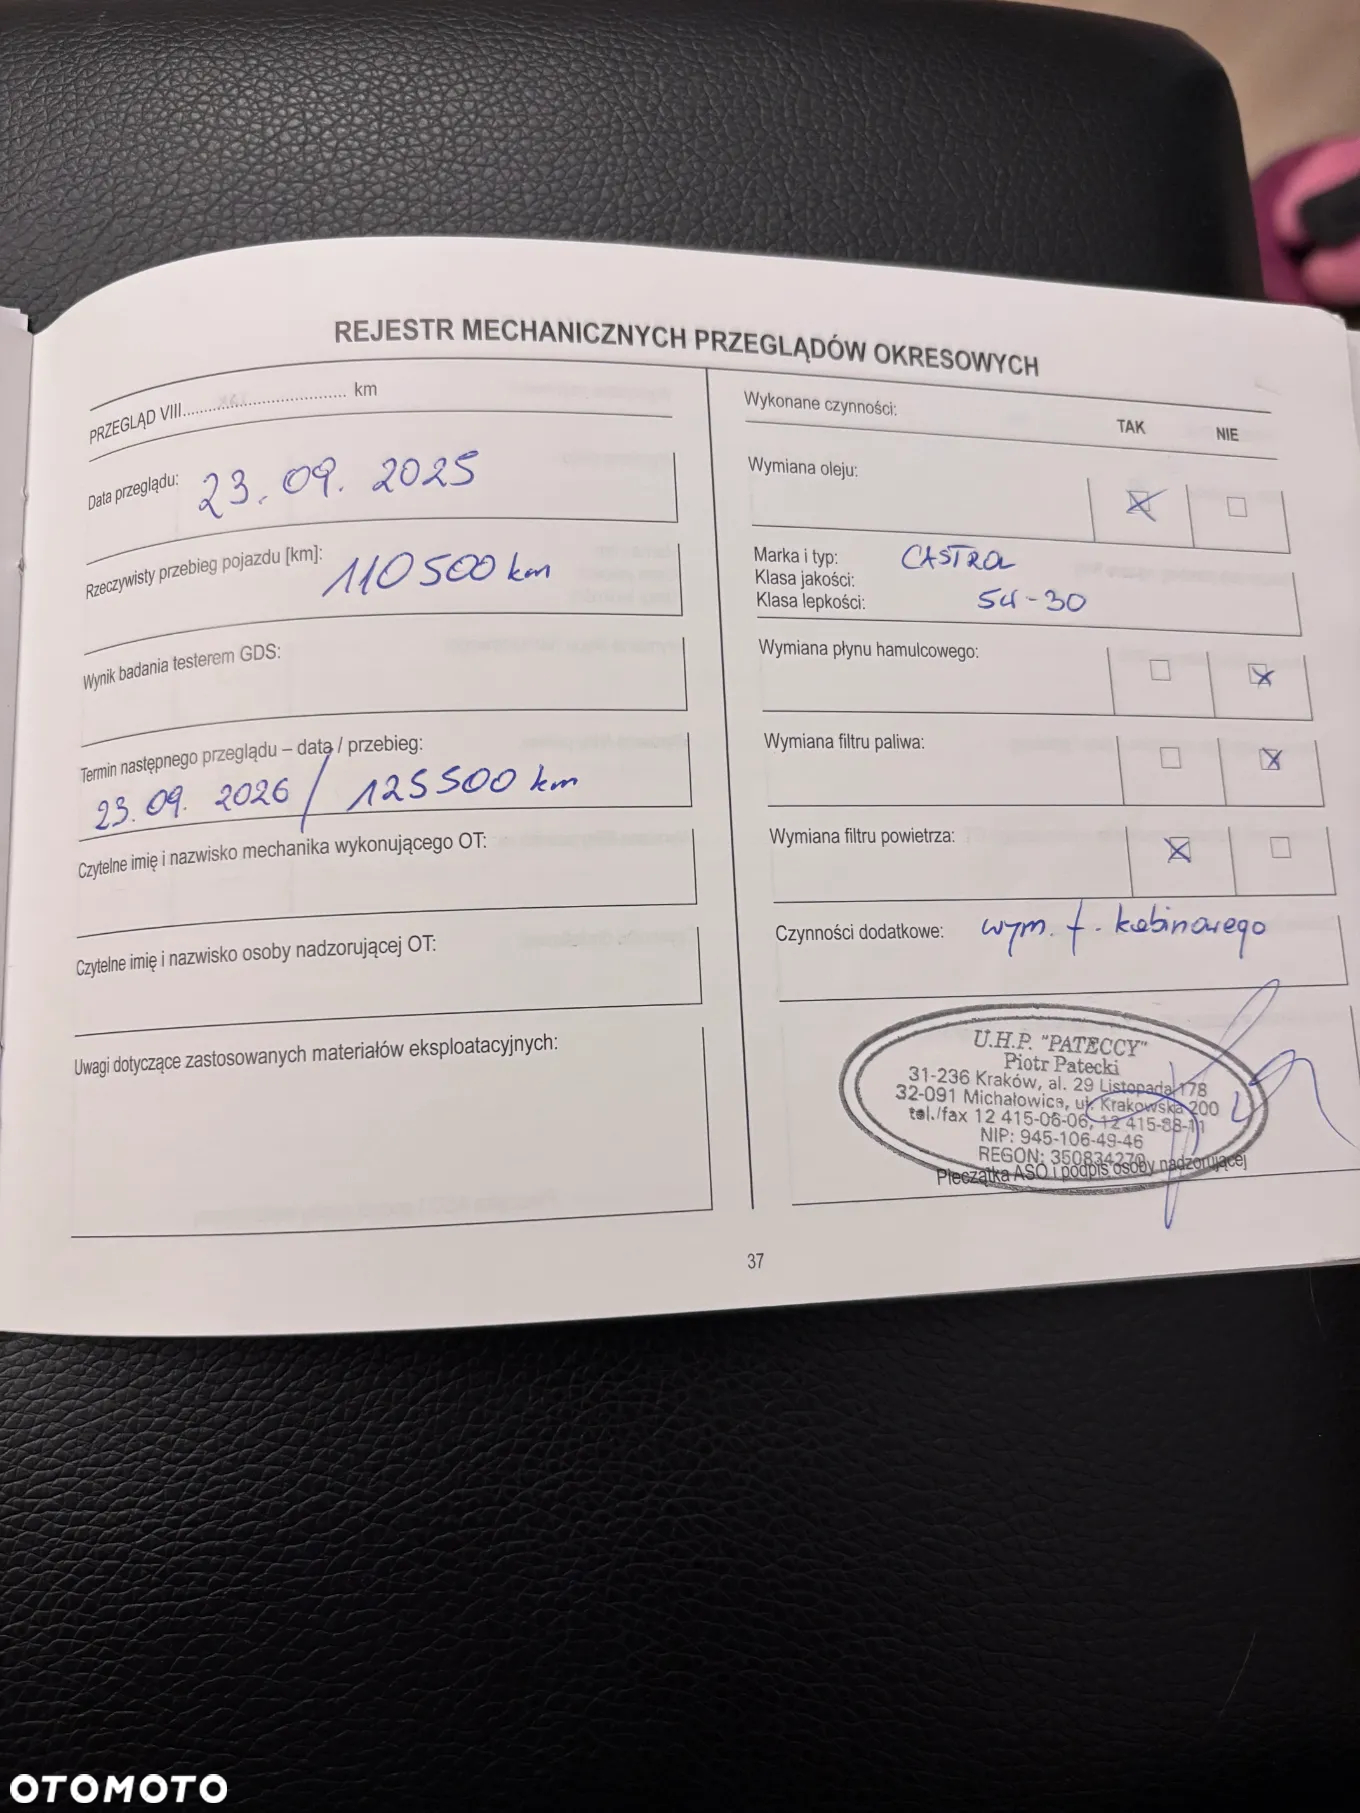 REJESTR MECHANICZNYCH PRZEGLĄDÓW OKRESOWYCH
PRZEGLĄD VIII.................................... km
Data przeglądu: 23.09.2025
Rzeczywisty przebieg pojazdu [km]: 110500 km
Wynik badania testerem GDS:
Termin następnego przeglądu – data / przebieg:
23.09.2026 / 125500 km
Czytelne imię i nazwisko mechanika wykonującego OT:
Czytelne imię i nazwisko osoby nadzorującej OT:
Uwagi dotyczące zastosowanych materiałów eksploatacyjnych:
Wykonane czynności:
TAK NIE
Wymiana oleju:
Marka i typ: CASTROL
Klasa jakości:
Klasa lepkości: 5W-30
Wymiana płynu hamulcowego:
Wymiana filtru paliwa:
Wymiana filtru powietrza:
Czynności dodatkowe: wym. f. kabinowego
U.H.P. "PATECCY"
Piotr Patecki
31-236 Kraków, al. 29 Listopada 178
32-091 Michałowice, ul. Krakowska 200
tel./fax 12 415-06-06, 12 415-88-11
NIP: 945-106-49-46
REGON: 350834270
Pieczątka ASO i podpis osoby nadzorującej
37
OTOMOTO